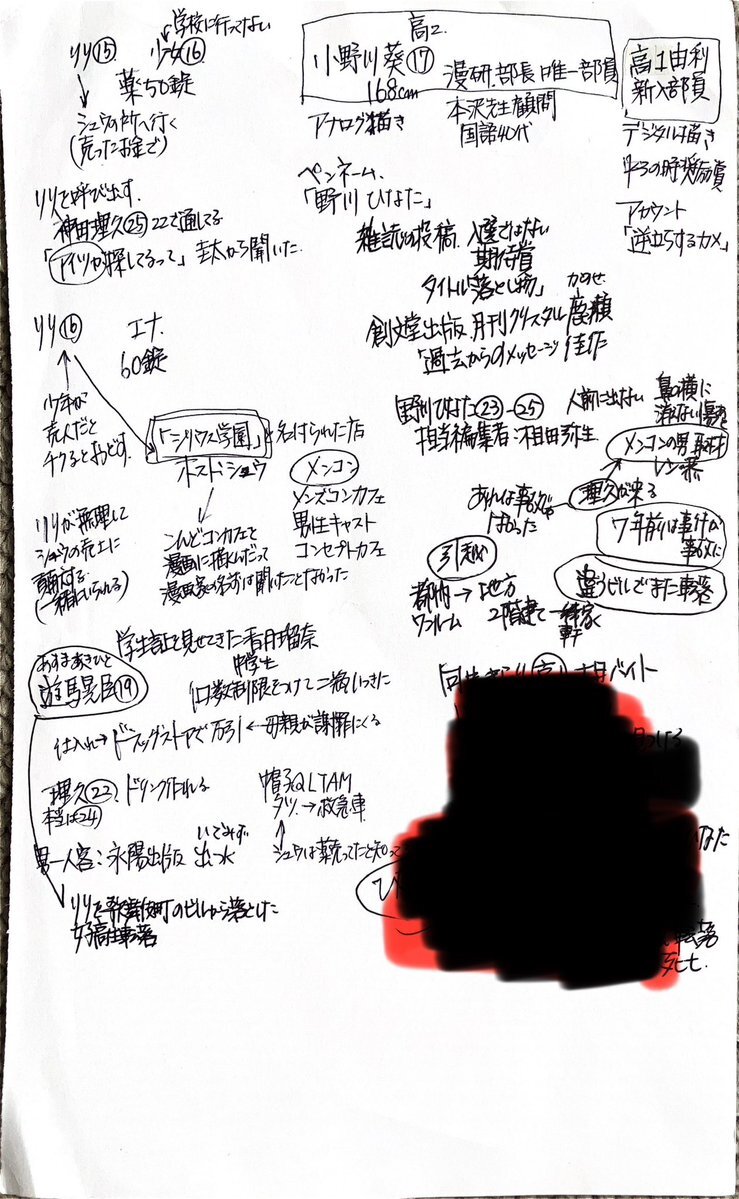 学校に行ってない
リリ⑮ 少女⑯
薬50錠
シュウの所へ行く
(売ったお金で)
リリを呼び出す
神田理久㉕22で通してる
「アイツが探してるって」圭太から聞いた
高2
小野川葵⑰
168cm
漫研.部長 唯一部員
アナログ描き
本沢先生 顧問
国語40代
高1由利
新入部員
デジタル描き
中3の時奨励賞
アカウント
「逆立ちするカメ」
ペンネーム.
「野川ひなた」
雑誌の投稿. 入選ではない
期待賞
タイトル「落とし物」
創文堂出版.月刊クリスタル 廣瀬
「過去からのメッセージ」佳作
リリ⑯ エナ.
60錠
少年が
売人だと
チクるとおどす.
「シリウス学園」と名付けられた店
ホスト・シュウ
メンコン
メンズコンカフェ
男性キャスト
コンセプトカフェ
リリが無理して
シュウの売上に
貢献する
(一緒にいられる)
こんどコンカフェと
漫画に描くんだって
漫画家の名前は聞いたことなかった
野川ひなた㉓-㉕ 人前に出ない
担当編集者:相田弥生
鼻の横に
消えない傷
メンコンの男取材
レン
理久が来る
あれは事故じゃ
なかった
7年前は事件が
事故に
違うビルでまた転落
引越
都内→地方
ワンルーム 2階建て一軒家
学生証を見せてきた香月瑠奈
中学生
あすまあきひと
遊馬晃臣⑲
個数制限をつけて二瓶いっきに
仕入れ→ドラッグストアで万引←母親が謝罪にくる
理久㉒.ドリンク作れる
本当は㉔
男一人客:永陽出版 出水
いでみず
帽子QLTAM
タツ.→救急車
シュウは薬売ってたと知って
リリを歌舞伎町のビルから落とした
女子高生転落
バイト
なた
転落
死亡.